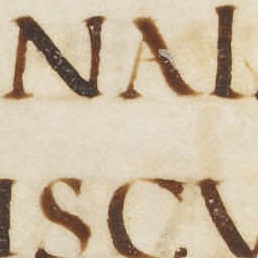 NAL
ISCV